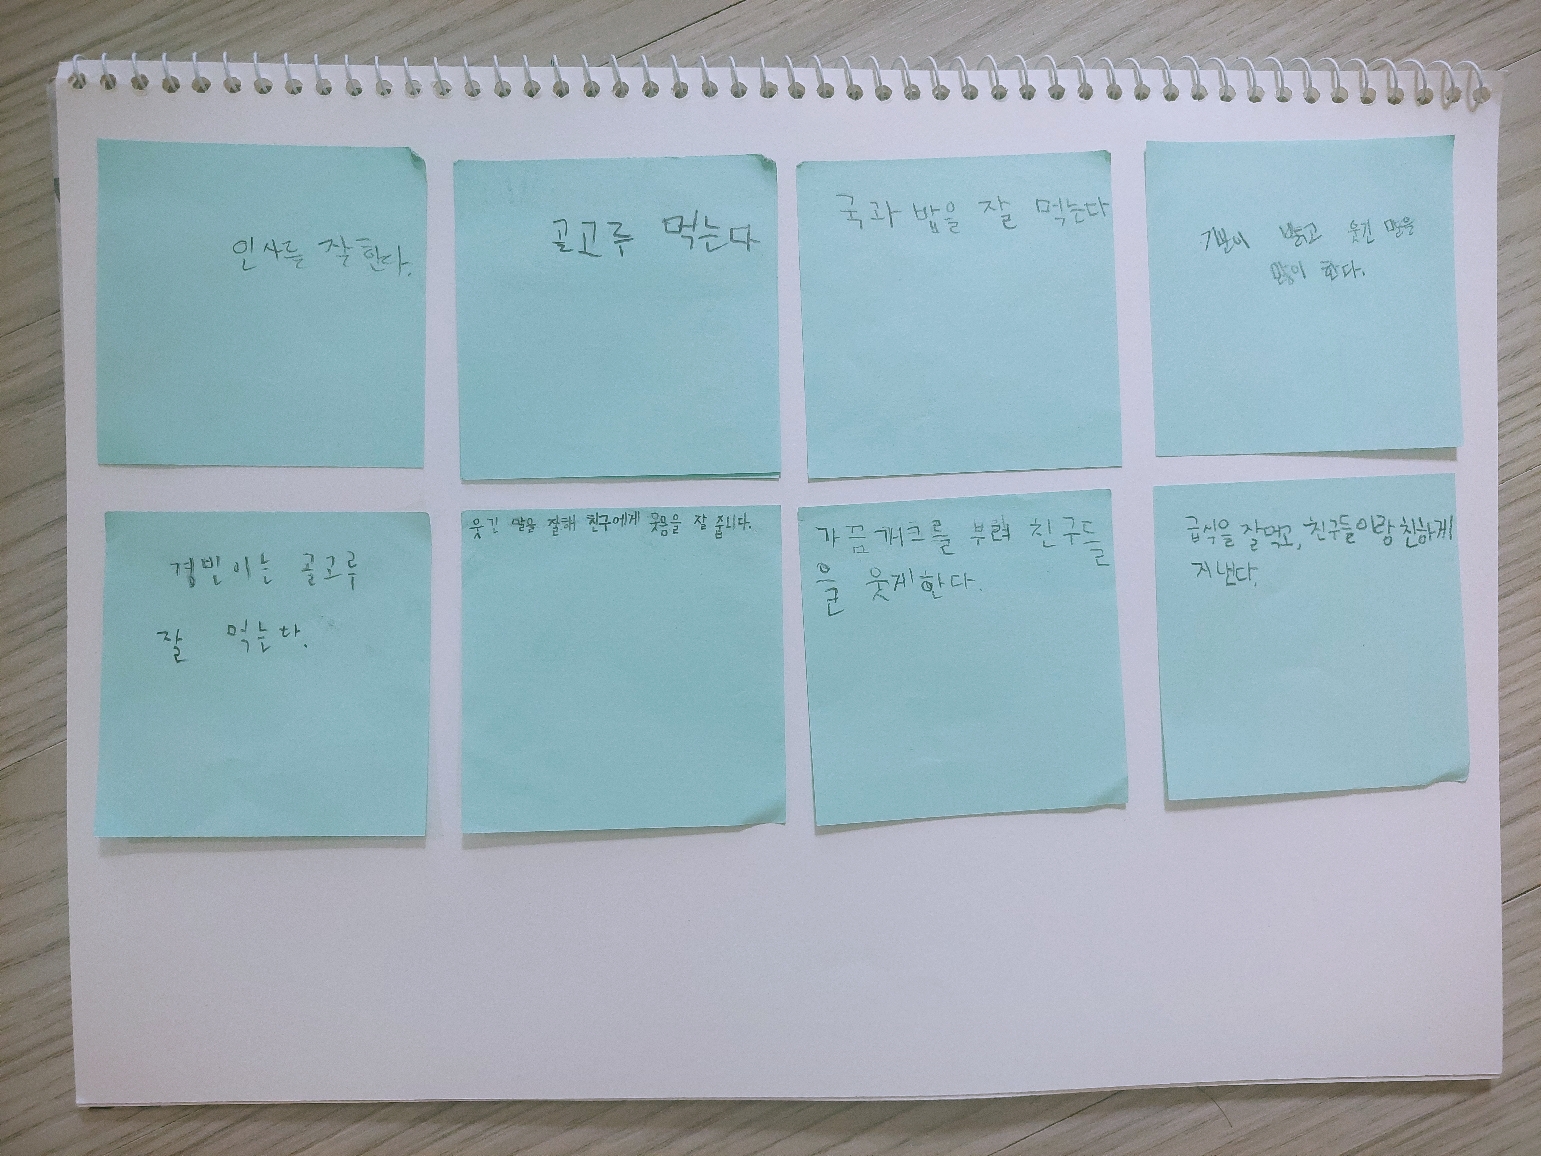 인사를 잘한다.
골고루 먹는다
국과 밥을 잘 먹는다
기분이 밝고 웃긴 말을
많이 한다.
경빈이는 골고루
잘 먹는다.
웃긴 말을 잘해 친구에게 웃음을 잘 줍니다.
가끔 개크를 부려 친구들
을 웃게한다.
급식을 잘먹고, 친구들이랑 친하게
지낸다.